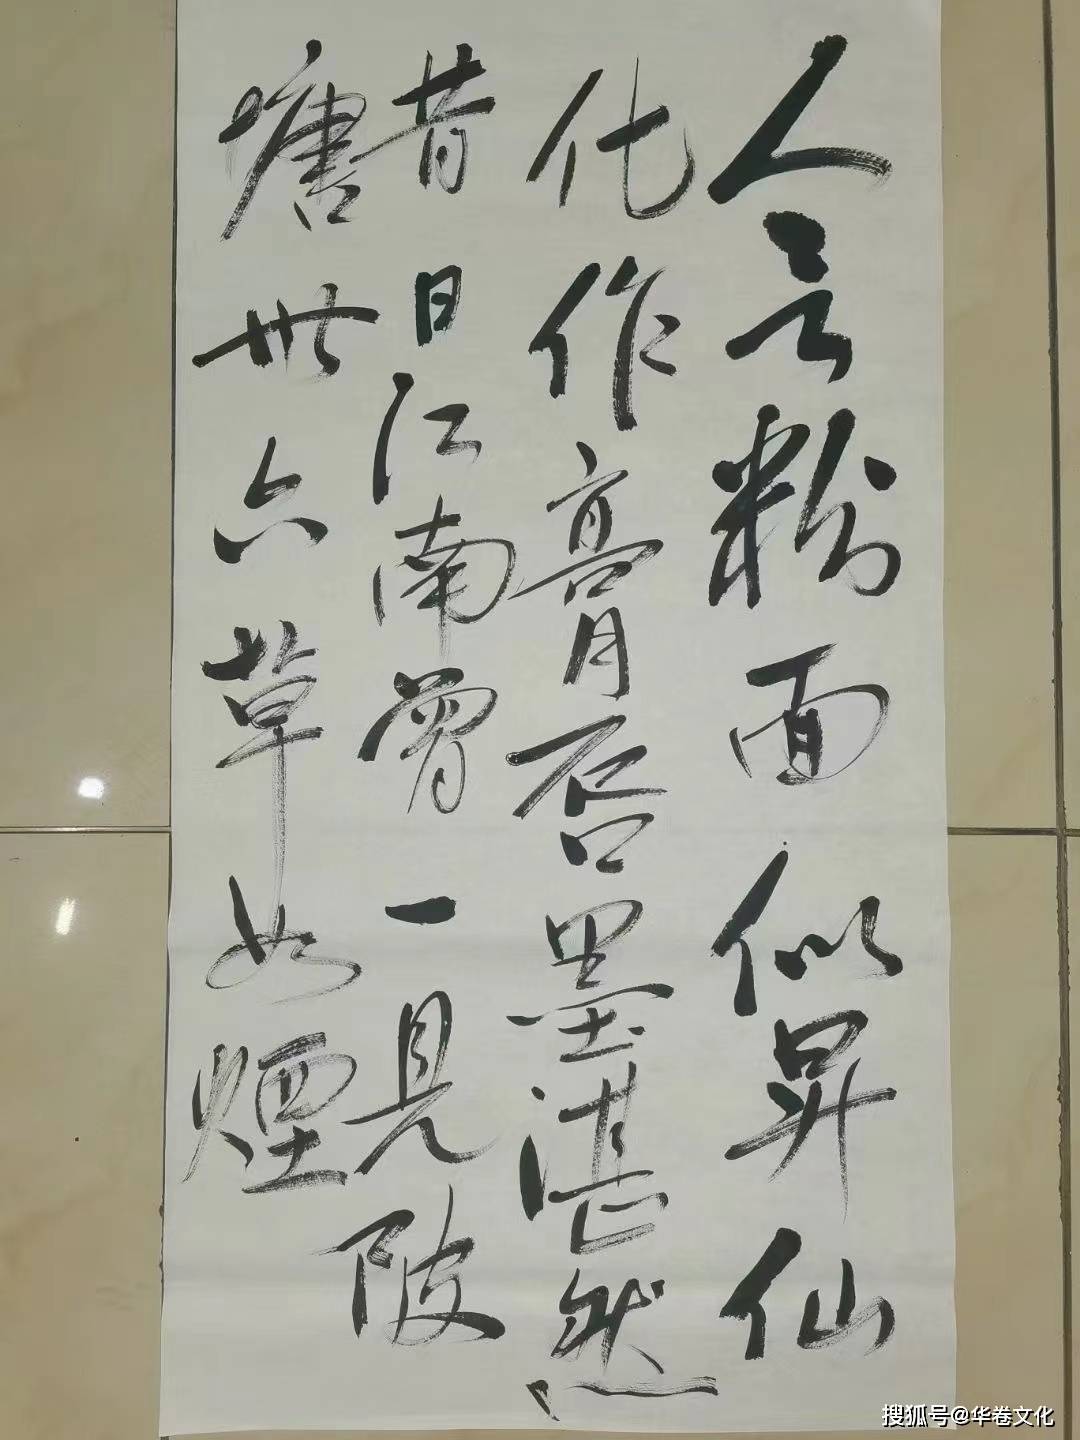 人言粉面似昇仙
化作膏唇墨湛然
昔日江南曾一見陂
塘卅六草如煙
搜狐号@华卷文化